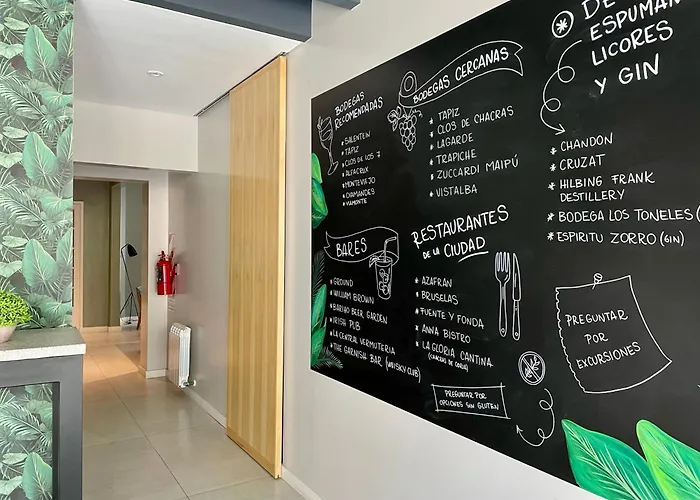 BODEGAS
RECOMENDADAS
* SALENTEIN
* TAPIZ
* CLOS DE LOS 7
* ALFACRUX
* MONTEVIEJO
* DIAMANDES
* VIAMONTE
BODEGAS CERCANAS
* TAPIZ
* CLOS DE CHACRAS
* LAGARDE
* TRAPICHE
* ZUCCARDI MAIPÚ
* VISTALBA
DE
ESPUMAN
LICORES
Y GIN
* CHANDON
* CRUZAT
* HILBING FRANK
DESTILLERY
* BODEGA LOS TONELES (
* ESPIRITU ZORRO (GIN)
BARES
* GROUND
* WILLIAM BROWN
* BARIHO BEER GARDEN
* IRISH PUB
* LA CENTRAL VERMUTERIA
* THE GARNISH BAR (WHISKY CLUB)
RESTAURANTES
DE LA CIUDAD
* AZAFRAN
* BRUSELAS
* FUENTE Y FONDA
* ANNA BISTRO
* LA GLORIA CANTINA
(CHACRAS DE CORIA)
PREGUNTAR POR
OPCIONES SIN GLUTEN
PREGUNTAR
POR
EXCURSIONES